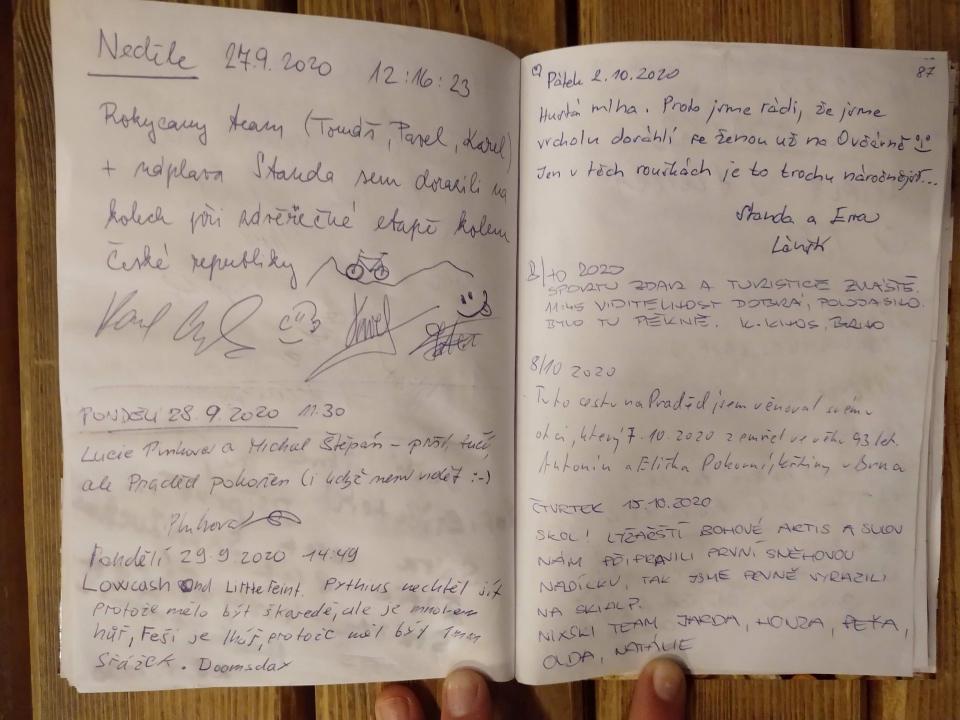 Neděle 27.9.2020 12:16:23
Rokycany team (Tomáš, Pavel, Karel)
+ náplava Standa sem dorazili na
kolech při závěrečné etapě kolem
České republiky
PONDĚLÍ 28.9.2020 11:30
Lucie Pinkova a Michal Štěpán – prší, fučí,
ale Praděd pokořen (i když není vidět :-)
Pondělí 29.9 2020 14:49
Lowcash and LittlePeint. Pythius nechtěl jít
protože mělo být škaredě, ale je mnohem
hůř, Feši je lhůř, protože měl být 1mm
SŘÁŽEK. Doomsdax
87
Pátek 2.10.2020
Hustá mlha. Proto jsme rádi, že jsme
vrcholu dosáhli se ženou už na Ovčárně
Jen v těch rouškách je to trochu náročnější...
Standa a Ema
8/10 2020
SPORTU ZDAR A TURISTICE ZVLÁŠTĚ.
11:45 VIDITELNOST DOBRÁ,
BYLO TU PĚKNĚ. BRNO
8/10 2020
Tuto cestu na Praděd jsem věnoval svému
otci, který 7.10.2020 zemřel ve věku 93 let.
Antonín a Eliška Pokorní, z Brna
ČTVRTEK 15.10.2020
SKOL! LYŽAŘŠTÍ BOHOVÉ ARTIS A SULOV
NÁM PŘIPRAVILI PRVNÍ SNĚHOVOU
NADÍLKU, TAK JSME PEVNĚ VYRAZILI
NA SKIALP.
NIXSKI TEAM JARDA, HONZA, PEŤA,
OLDA, NATÁLIE